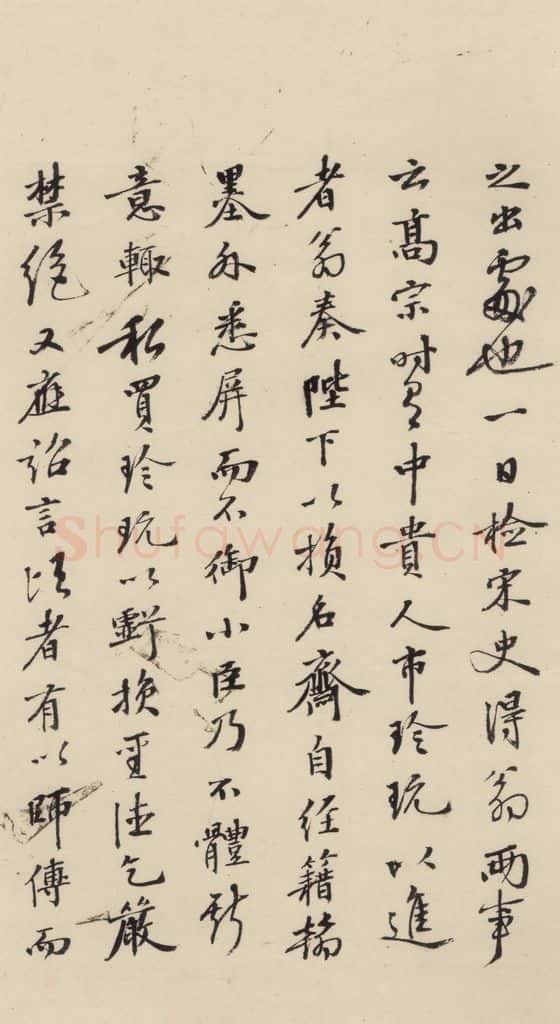 之出處也一日检宋史得翁兩事
云髙宗时有中貴人市珍玩以進
者翁奏陛下以損名齋自经籍翰
墨外悉屏而不御小臣乃不體斯
意輙私買珍玩以虧损圣德乞嚴
禁绝又應诏言顷者有以師傅而
Shufawang.CN